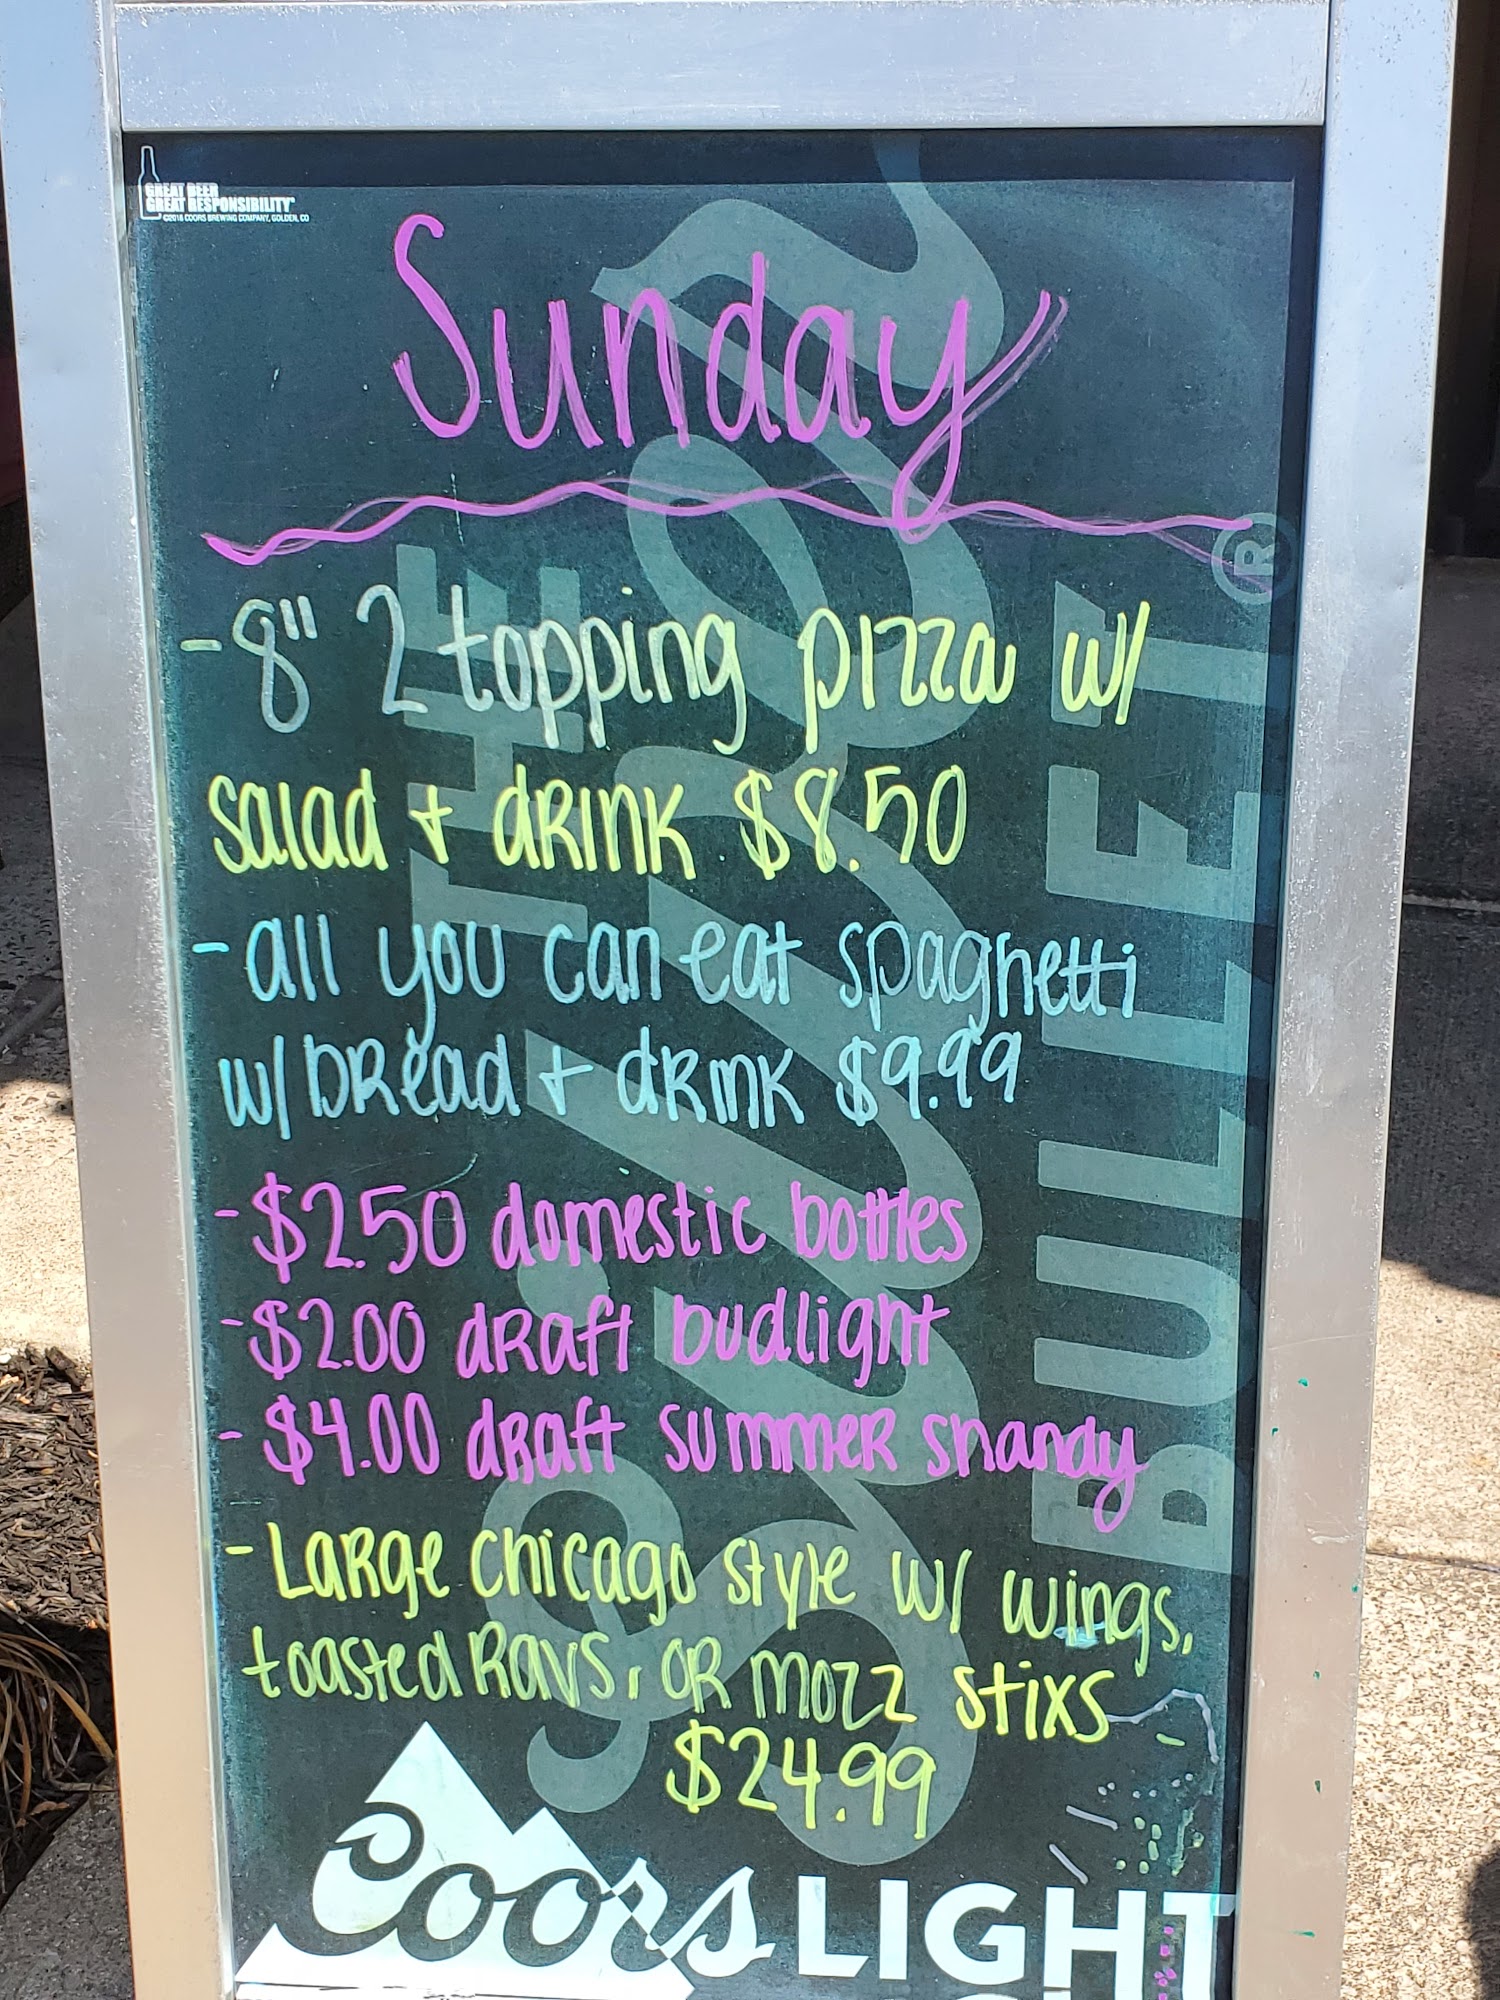 GREAT BEER
GREAT RESPONSIBILITY™
©2018 COORS BREWING COMPANY, GOLDEN, CO
Sunday
- 8" 2 topping pizza w/
salad + drink $8.50
- all you can eat spaghetti
w/ bread + drink $9.99
- $2.50 domestic bottles
- $2.00 draft budlight
- $4.00 draft summer shandy
- Large chicago style w/ wings,
toasted Ravs, or mozz stixs
$24.99
THE
Silver
BULLET®
Coors LIGHT